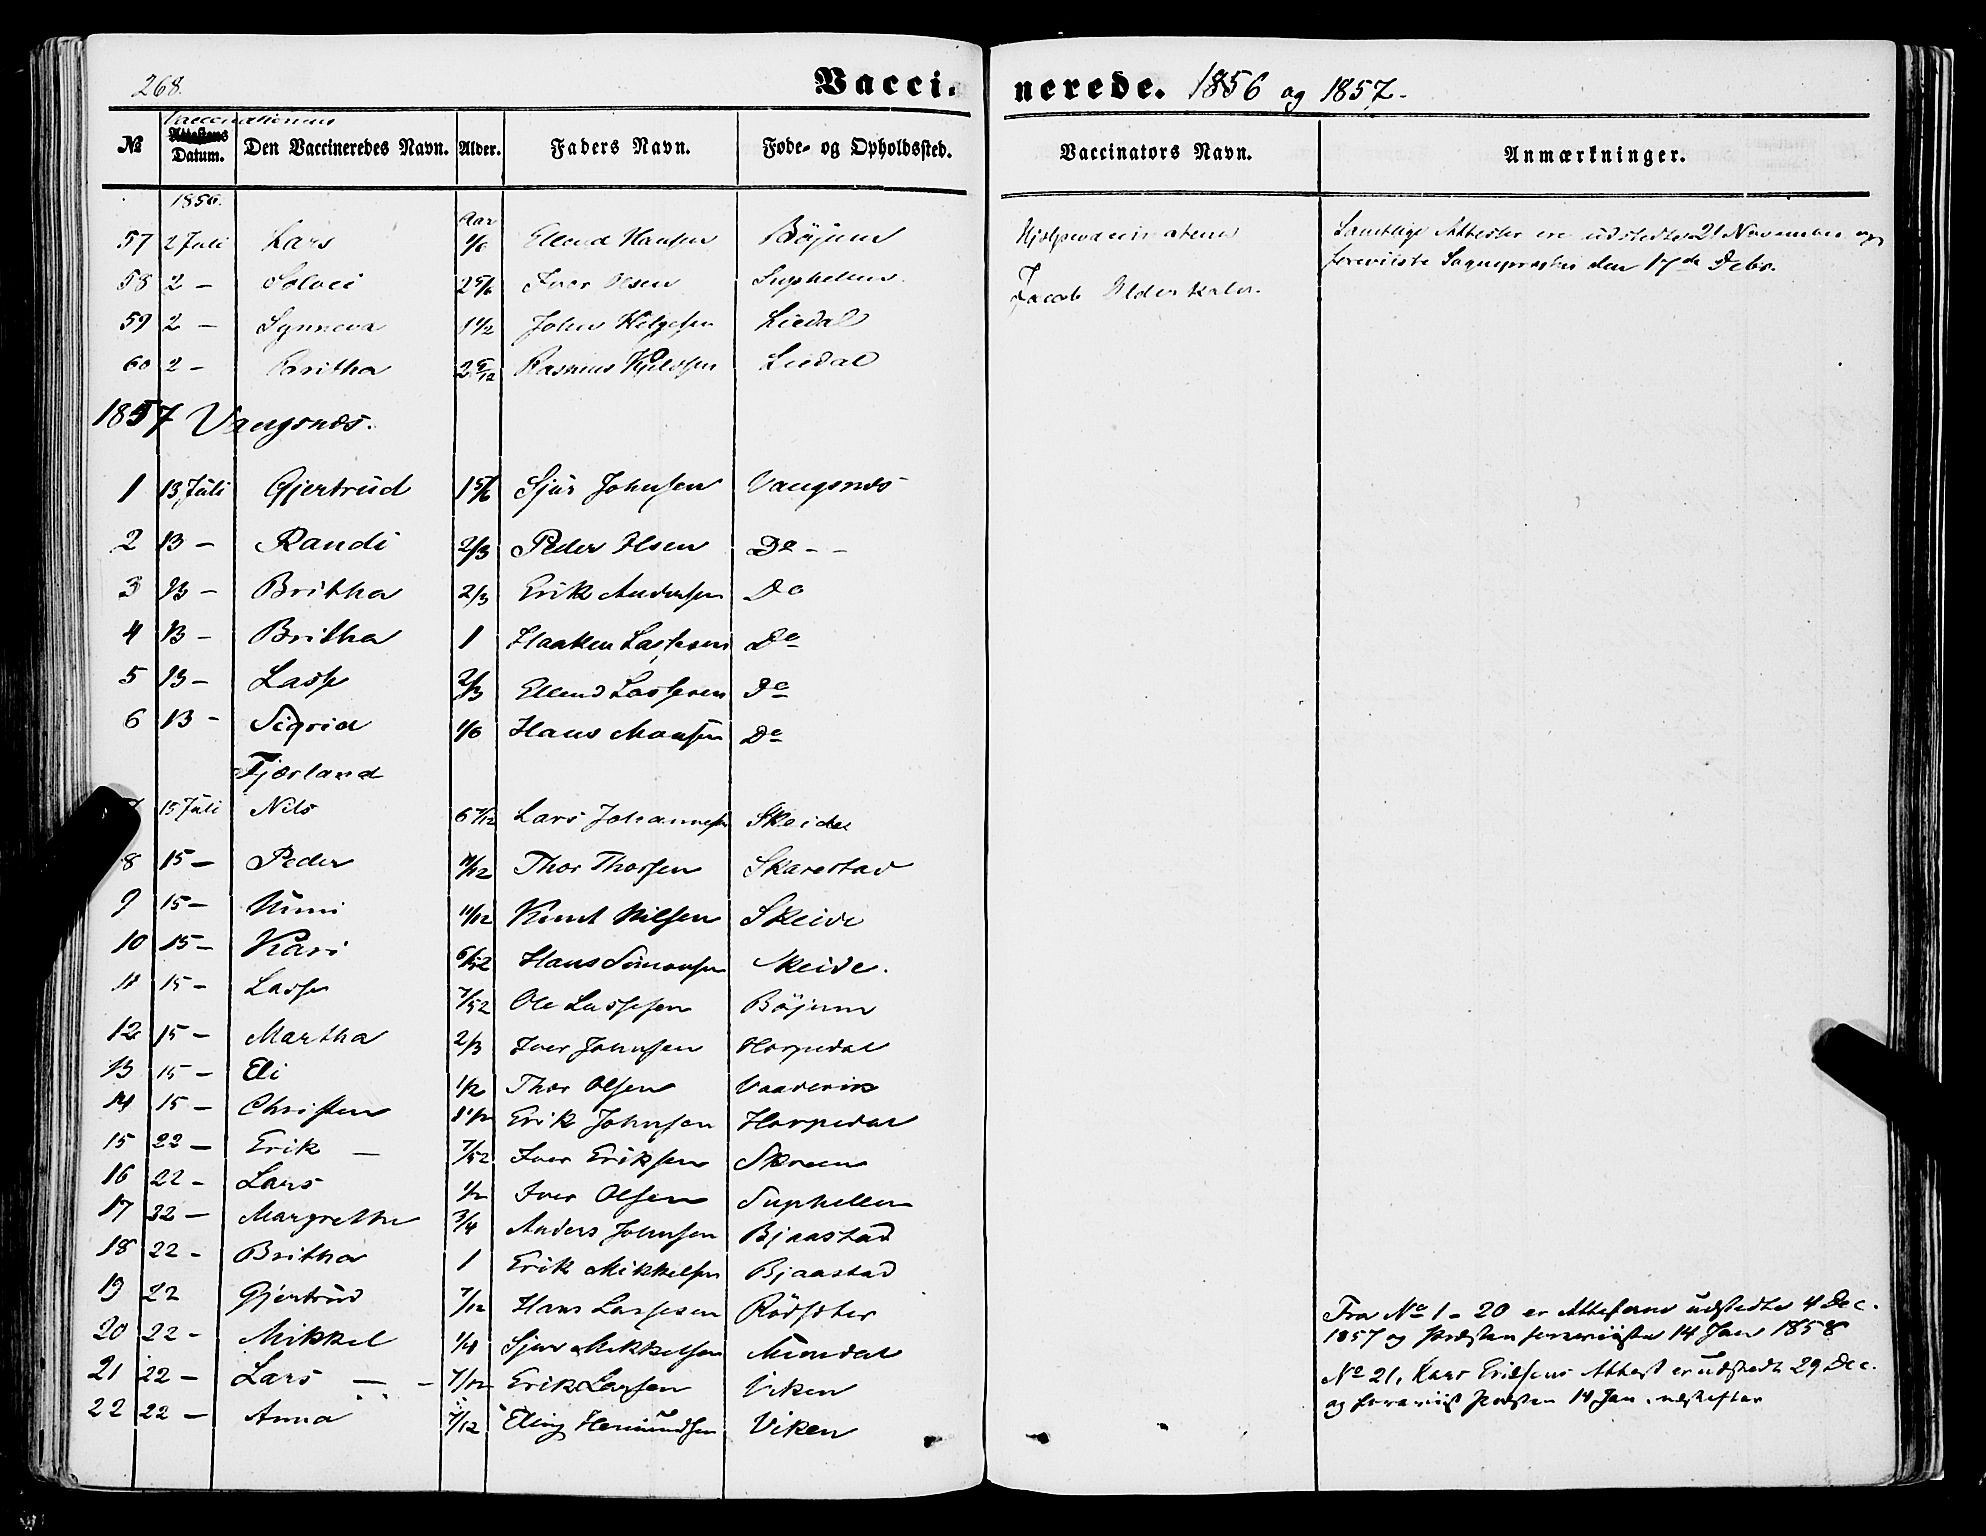 268.
Vacci- nerede. 1856 og 1857.
Vaccinationens
No Attestens Datum. Den Vaccineredes Navn. Alder. Faders Navn. Føde- og Opholdssted. Vaccinators Navn. Anmærkninger.
1856.
Aar
57 2 Juli Lars 1/6 Ellend Hansen Böjum Hjelpevaccinateur Samtlige Attester ere udstedte 21 November og
58 2 – Solvei 2 5/6 Iver Olsen Suphellen Jacob foreviiste Sognepræsten den 17de Debr.
59 2 – Synneva 1 1/2 John Helgesen Liedal
60 2 – Britha Rasmus Liedal
1857 Vangsnæs.
1 13 Juli Gjertrud 1 5/6 Sjur Johnsen Vangsnæs
2 13 – Randi 2/3 Peder Olsen Do – –
3 13 – Britha 2/3 Erik Andersen Do
4 13 – Britha 1 Haaken Lassesen Do
5 13 – Lasse 2/3 Ellend Lassesen Do
6 13 – Sigrid 1/6 Hans Monsen Do
Fjærland
7 15 Juli Nils 6 7/12 Lars Johannesen Skeide
8 15 – Peder 11/12 Thor Thorsen Skarestad
9 15 – Unni 11/12 Knut Nilsen Skeide
10 15 – Kari 6/52 Hans Simonsen Skeide.
11 15 – Lasse 7/52 Ole Lassesen Böjum
12 15 – Martha 2/3 Iver Johnsen Horpedal
13 15 – Eli 1/2 Thor Olsen
14 15 – Christen Erik Johnsen Horpedal
15 22 – Erik – 7/52 Iver Eriksen Skreen
16 22 – Lars 1/2 Iver Olsen Suphellen
17 22 – Margrethe 3/4 Anders Johnsen Bjaastad
18 22 – Britha 1 Erik Mikkelsen Bjaastad
19 22 Gjertrud 7/12 Hans Lassesen Rödsæter Fra No 1 – 20 er Attesterne udstedte 4 Dec.
20 22 – Mikkel 1/4 Sjur Mikkelsen Mundal 1857 og Præsten foreviiste 14 Jan 1858
21 22 – Lars – – 7/12 Erik Larsen Viken No 21, Lars Eriksens Attest er udstedt 29 Dec.
22 22 – Anna 7/12 Elling Hermundsen Viken og foreviist Præsten 14 Jan.